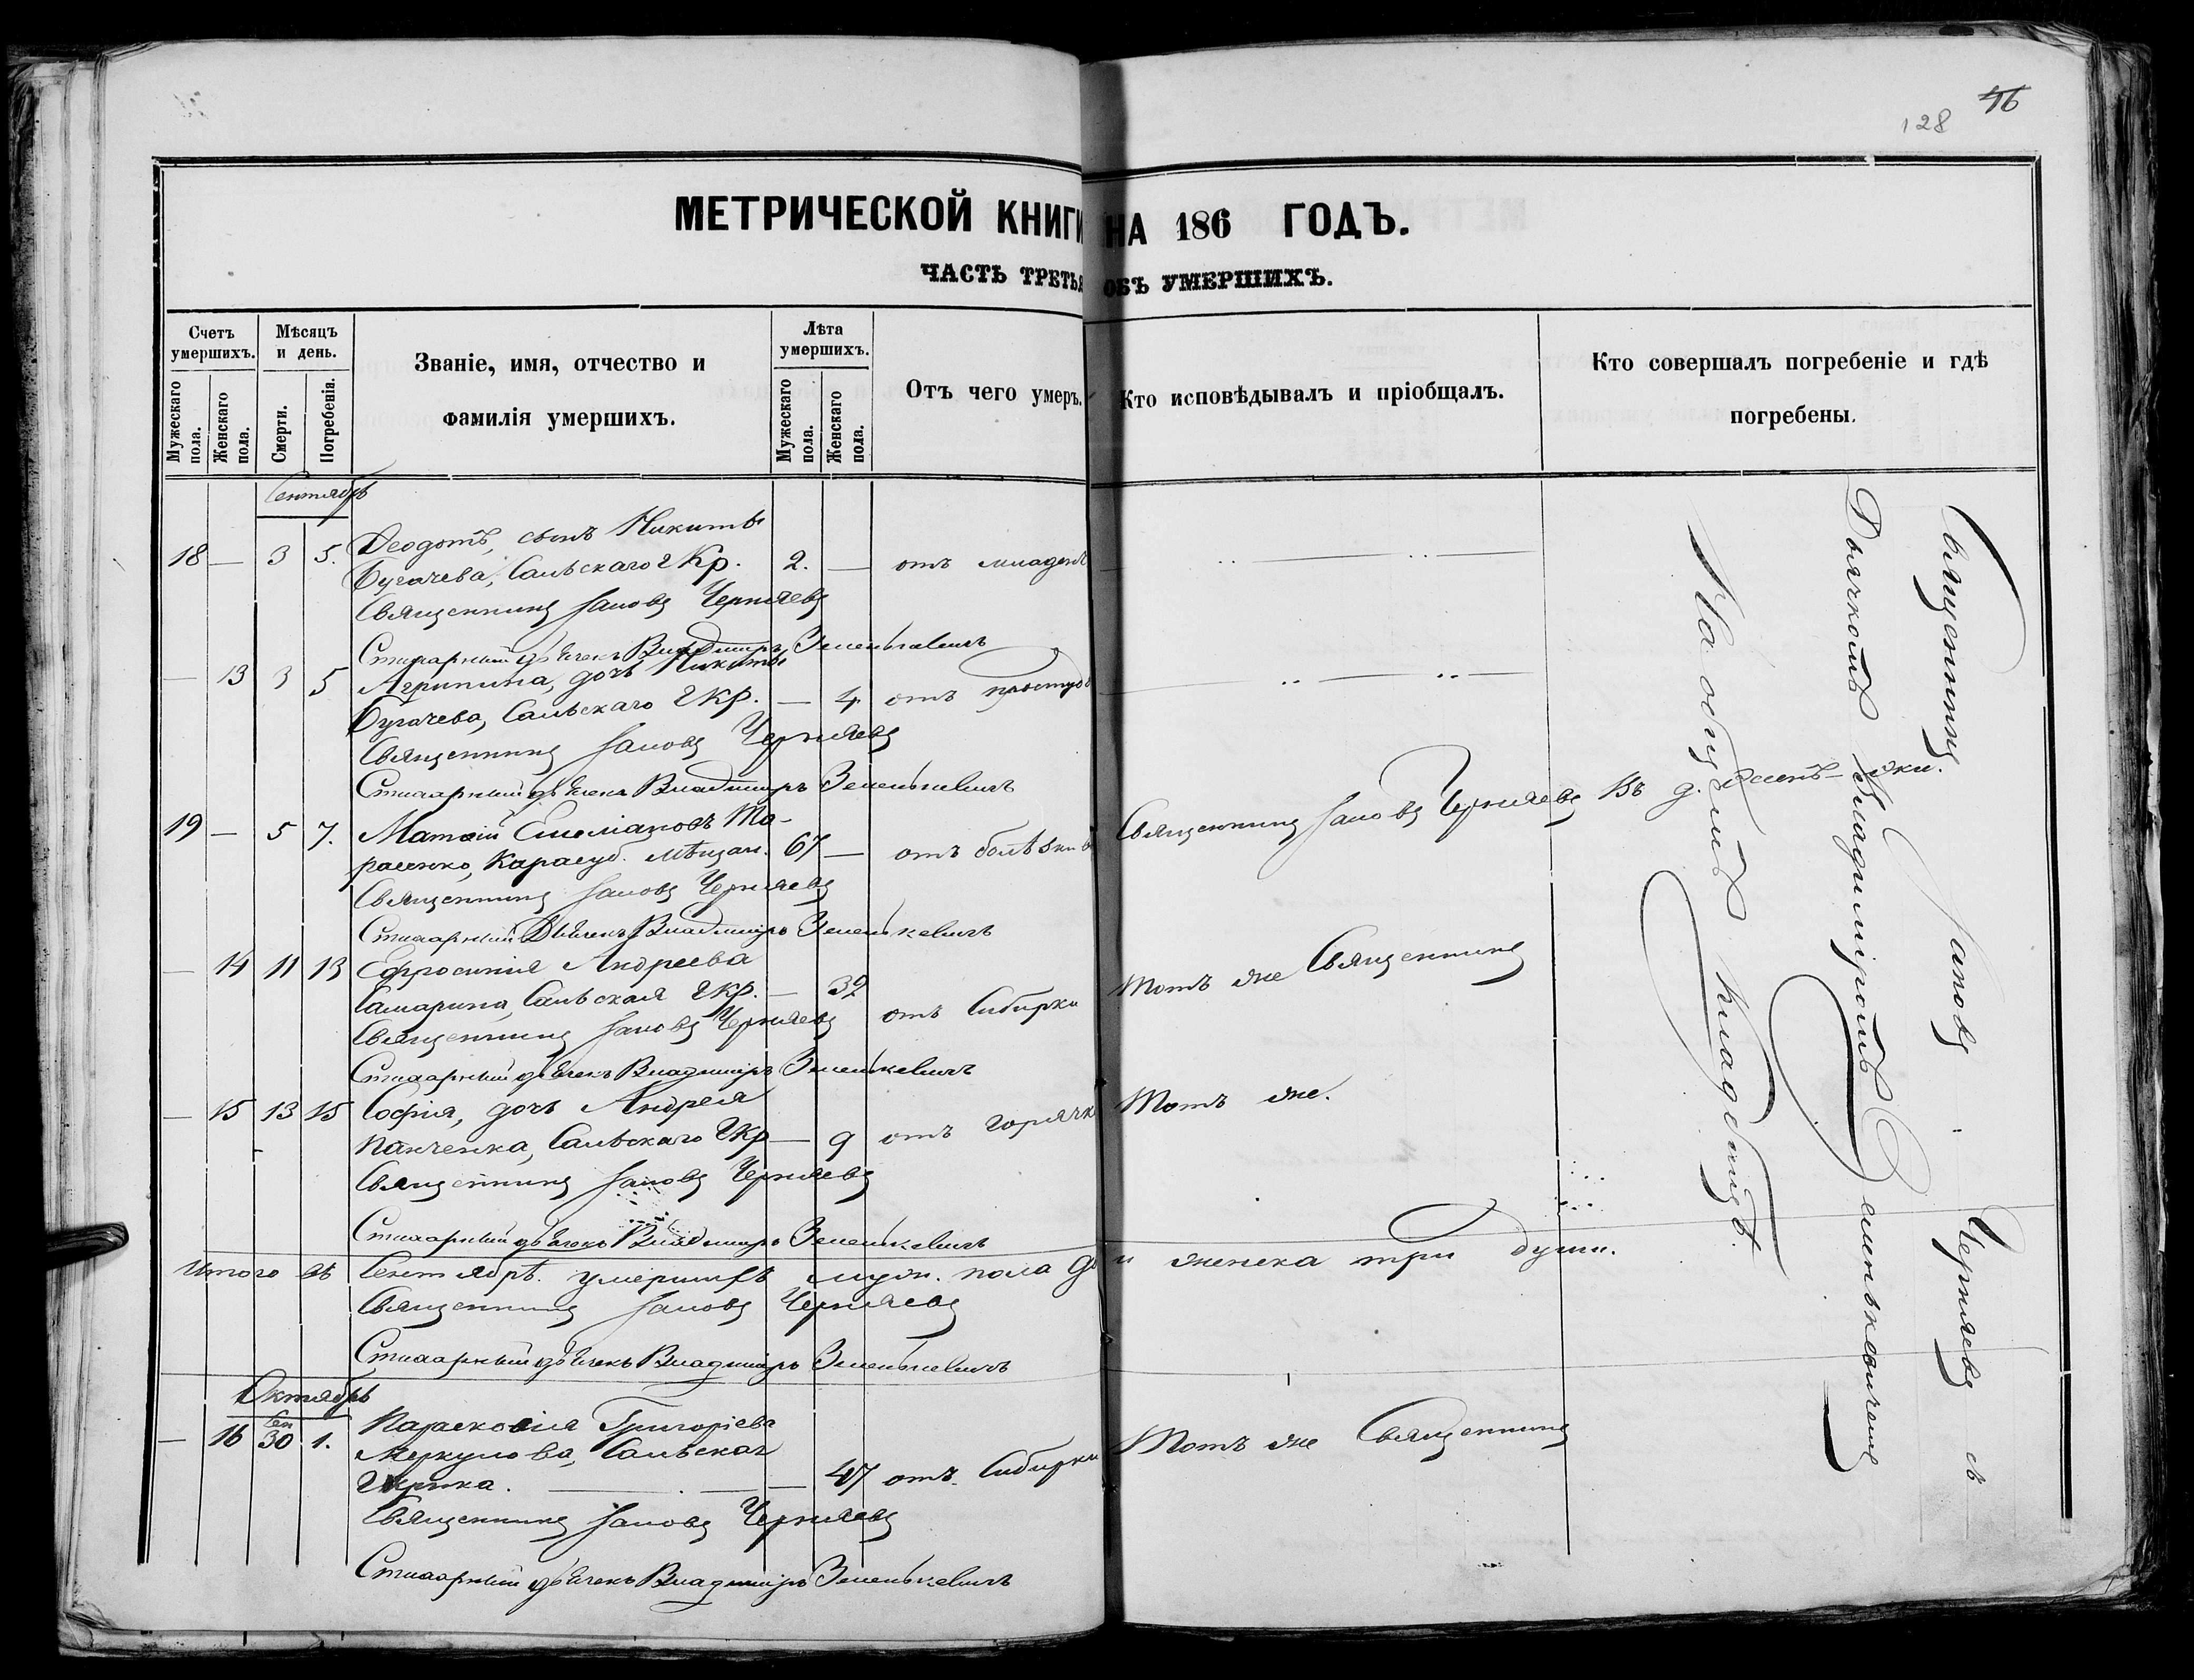 46
128
МЕТРИЧЕСКОЙ КНИГИ НА 186 ГОДЪ.
ЧАСТЬ ТРЕТЬЯ ОБЪ УМЕРШИХЪ.
Счетъ умершихъ.
Мужескаго пола.
Женскаго пола.
Мѣсяцъ и день.
Смерти.
Погребенія.
Званіе, имя, отчество и
фамилія умершихъ.
Лѣта умершихъ.
Мужескаго пола.
Женскаго пола.
Отъ чего умеръ.
Кто исповѣдывалъ и пріобщалъ.
Кто совершалъ погребеніе и гдѣ
погребены.
Сентябрь
18 — 3 5. Ѳеодотъ, сынъ Никиты
Бугачева, Сальскаго Г Кр. 2. — отъ младен
Священникъ Іаковъ Черняевъ
Стихарный дьячекъ Владиміръ Зеленькевичъ
— 13 3 5 Агрипина, дочь Никиты
Бугачева, Сальскаго Г Кр. — 4 отъ простуд
Священникъ Іаковъ Черняевъ
Стихарный дьячекъ Владиміръ Зеленькевичъ
19 — 5 7. Матѳій Емеліановъ Та-
расенко, Карасуб. мѣщан. 67 — отъ болѣзни Священникъ Іаковъ Черняевъ Въ д.
Священникъ Іаковъ Черняевъ
Стихарный Дьячекъ Владиміръ Зеленькевичъ
— 14 11 13 Ефросинія Андреева
Самарина, Сальская Г Кр. — 32 отъ Сибирки Тотъ же Священникъ
Священникъ Іаковъ Черняевъ
Стихарный дьячекъ Владиміръ Зеленькевичъ
— 15 13 15 Софія, дочь Андрея
Панченка, Сальскаго Г Кр — 9 отъ горячк Тотъ же.
Священникъ Іаковъ Черняевъ
Стихарный дьячекъ Владиміръ Зеленькевичъ
Итого въ Сентябрѣ. умершихъ муж. пола и женска три души.
Священникъ Іаковъ Черняевъ
Стихарный дьячекъ Владиміръ Зеленькевичъ
Октябрь
Сен
— 16 30 1. Парасковія Григоріева
Меркулова, Сальская
— 47 отъ Сибирки Тотъ же Священникъ
Священникъ Іаковъ Черняевъ
Стихарный дьячекъ Владиміръ Зеленькевичъ
Священникъ Іаковъ Черняевъ съ
Дьячкомъ Владиміромъ Зеленькевичемъ
На общемъ кладбищѣ.